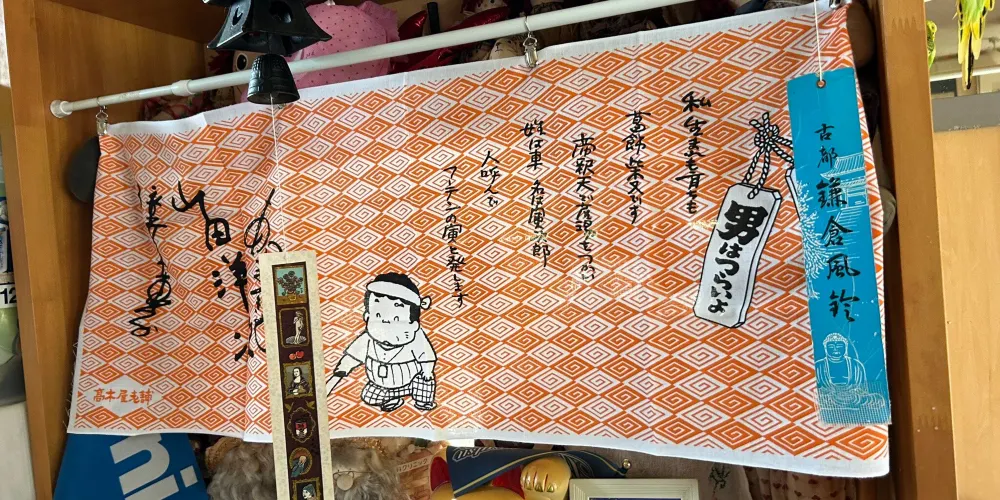 古都
鎌倉風鈴
男はつらいよ
私 生まれも育ちも
葛飾 柴又です
帝釈天で産湯をつかい
姓は車 名は寅次郎
人呼んで
フーテンの寅と発します
山田洋次
高木屋老舗
12